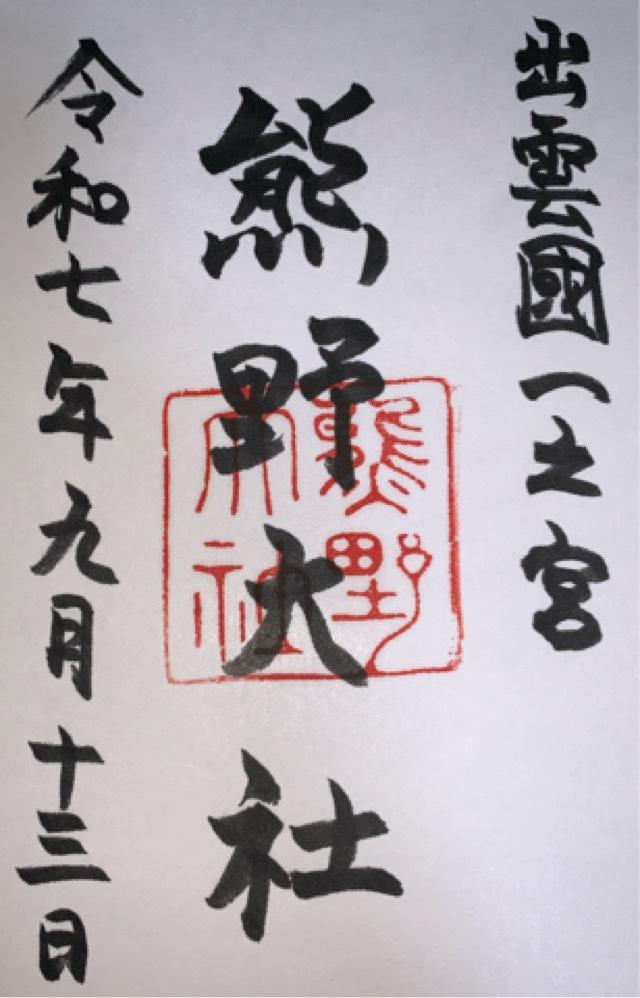 出雲國一之宮
熊野大社
熊野大社
令和七年九月十三日